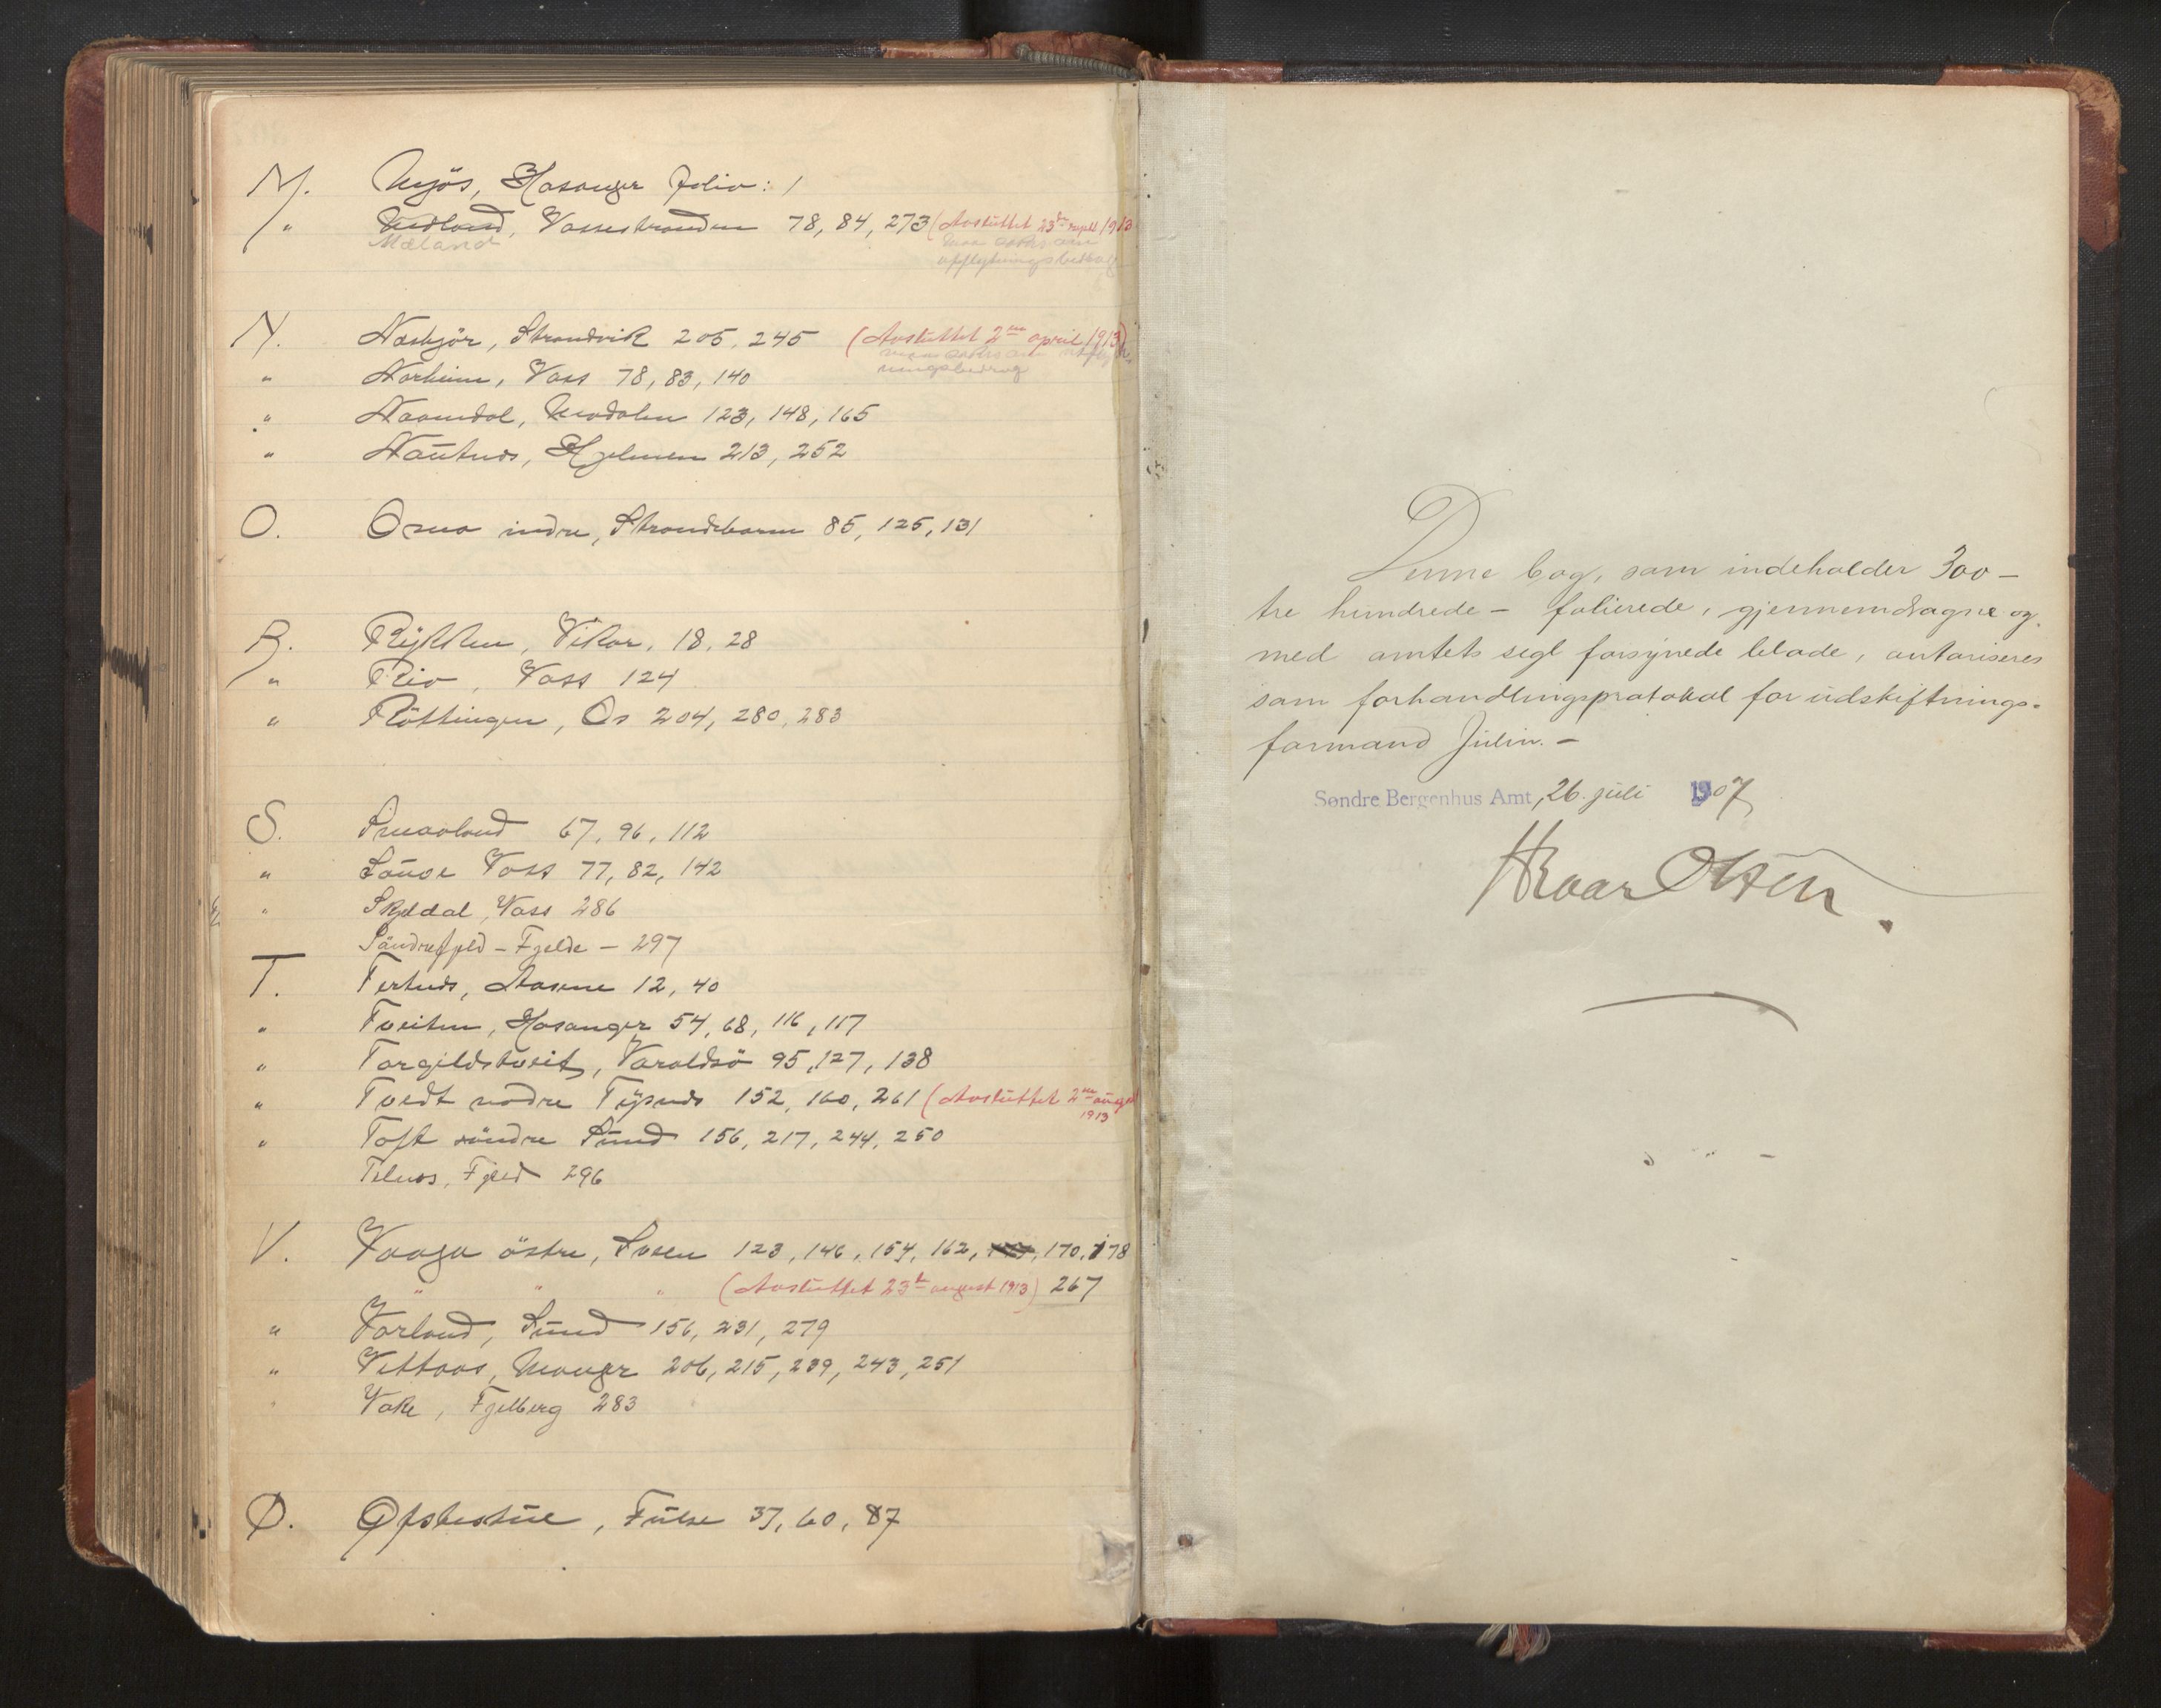 M. Mjös, Hosanger folio: 1
" Midland, Vossestranden 78, 84, 273 (Avsluttet 23de septbr 1913
Mæland
N. Næskjör, Strandvik 205, 245 (Avsluttet 2en april 1913)
" Norheim, Voss 78, 83, 140
" Naamdal, Modalen 123, 148, 165
" Nautnes, Hjelmen 213, 252
O. Omo indre, Strandebarm 85, 125, 131
R. Rykken, Vikør, 18, 28
" Rio, Voss 124
" Röttingen, Os 204, 280, 283
S. Smaaland 67, 96, 112
" Sauve Voss 77, 82, 142
" Skjeldal, Voss 286
Söndrefjeld - Fjelde - 297
T. Tertnes, Aasene 12, 40
" Tveiten, Hosanger 54, 68, 116, 117
" Torgildstveit, Varaldsö 95, 127, 138
" Tvedt nedre Tysnes 152, 160, 261 (Avsluttet 2en august
1913
" Toft söndre Sund 156, 217, 244, 250
Telnes, Fjeld 296
V. Vaage östre, Sveen 123, 146, 154, 162, 170, 178
" " " (Avsluttet 23de august 1913) 267
" Vorland, Sund 156, 231, 279
" Vettaas, Manger 206, 215, 239, 243, 251
" Vake, Fjelberg 283
Ø. Øfstestue, Fuse 37, 60, 87
Denne bog, som indeholder 300 -
tre hundrede - folierede, gjennemdragne og
med amtets segl forsynede blade, autoriseres
som forhandlingsprotokol for udskiftnings-
formand Julin. -
Søndre Bergenhus Amt, 26. juli 1907
HRoar Olsen.